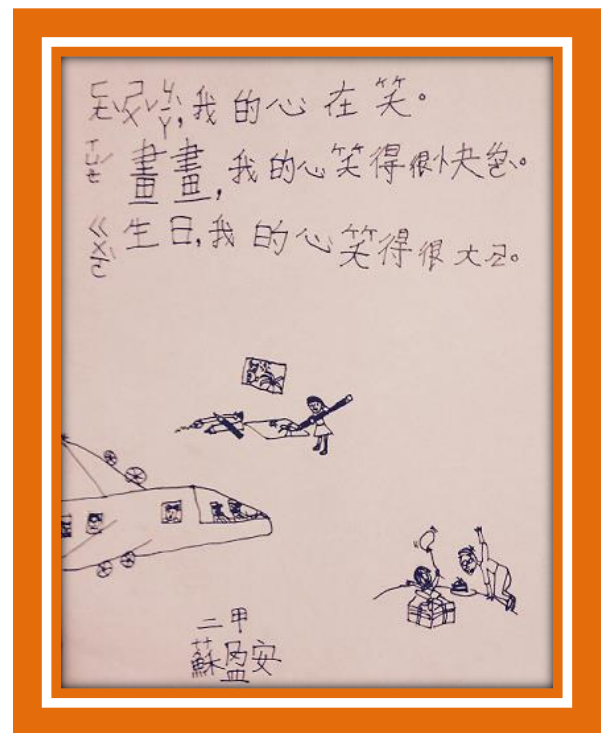 ㄈㄤˋㄕㄨˇㄐㄧㄚˋ,我的心在笑。
ㄒㄩㄝˊ畫畫,我的心笑得很快。
ㄍㄨㄛˋ生日,我的心笑得很大。
二甲
蘇盈安